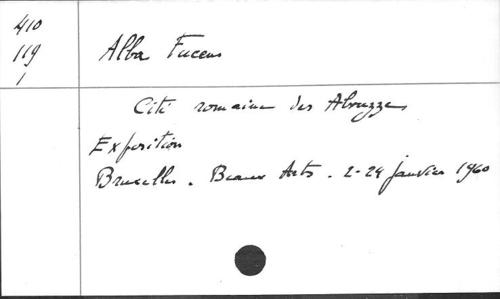 410
119
1
Alba Fucens
Cité romaine des Abruzzes
Exposition
Bruxelles. Beaux Arts. 2-24 janvier 1960